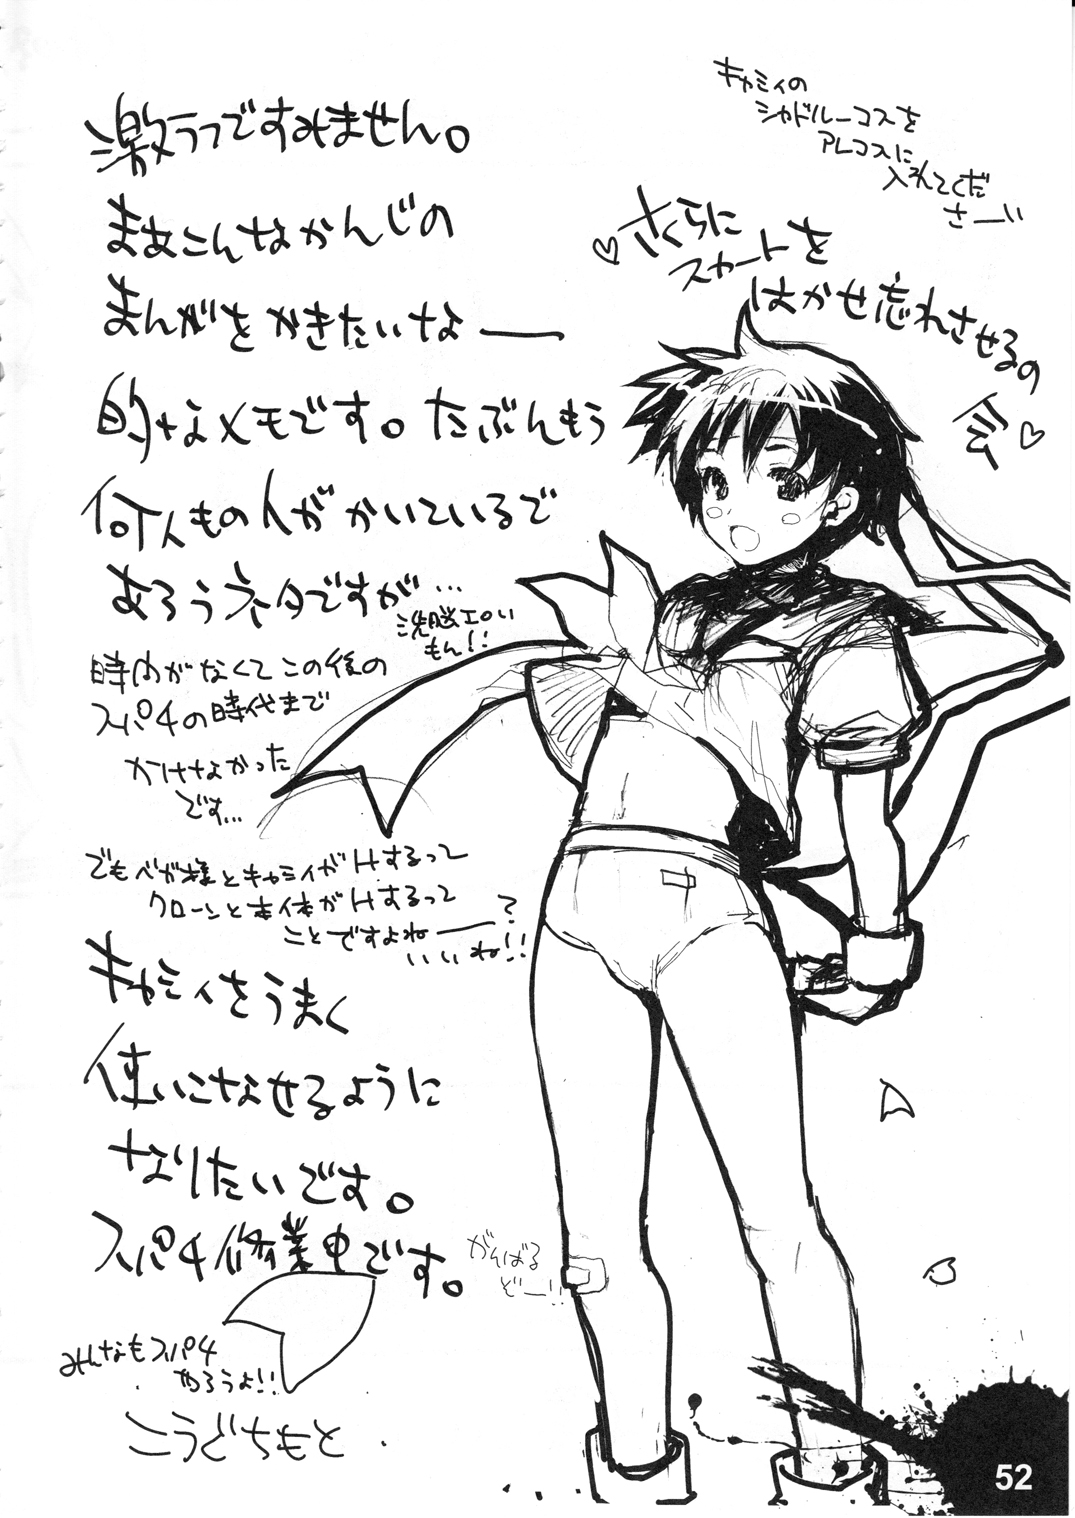 激ラフですみません。
まあこんなかんじの
まんがをかきたいなー
的なメモです。たぶんもう
何人もの人がかいているで
あろうネタですが…
洗脳エロい
もん!!
時間がなくてこの後の
スパ4の時代まで
かけなかった
です…
でもベガ様とキャミィがHするって
クローンと本体がHするって
ことですよねー?
いいね!!
キャミィをうまく
使いこなせるように
なりたいです。
スパ4修業中です。
がんばる
ぞー!!
みんなもスパ4
やろうよ!!
こうどちもと
キャミィの
シャドルーコスを
アレコスに
入れてくだ
さーい
♡さくらに
スカートを
はかせ忘れさせるの
会♡
52